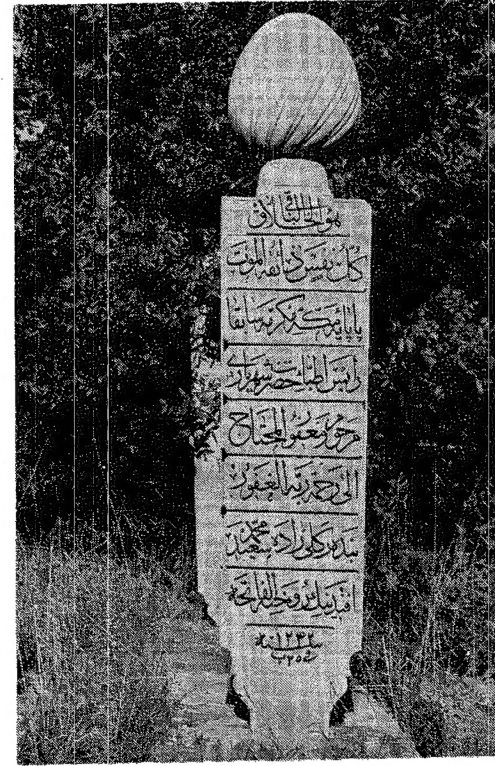 هو الخلاق الباقى
كل نفس ذائقة الموت
با پايه مكه مكرمه سابقا
رئيس اطباء حضرت شهريارى
مرحوم و مغفور المحتاج
الى رحمة ربه الغفور
زاده محمد سعيد
افندينك روحنه الفاتحه
سنه ١٢٣٢